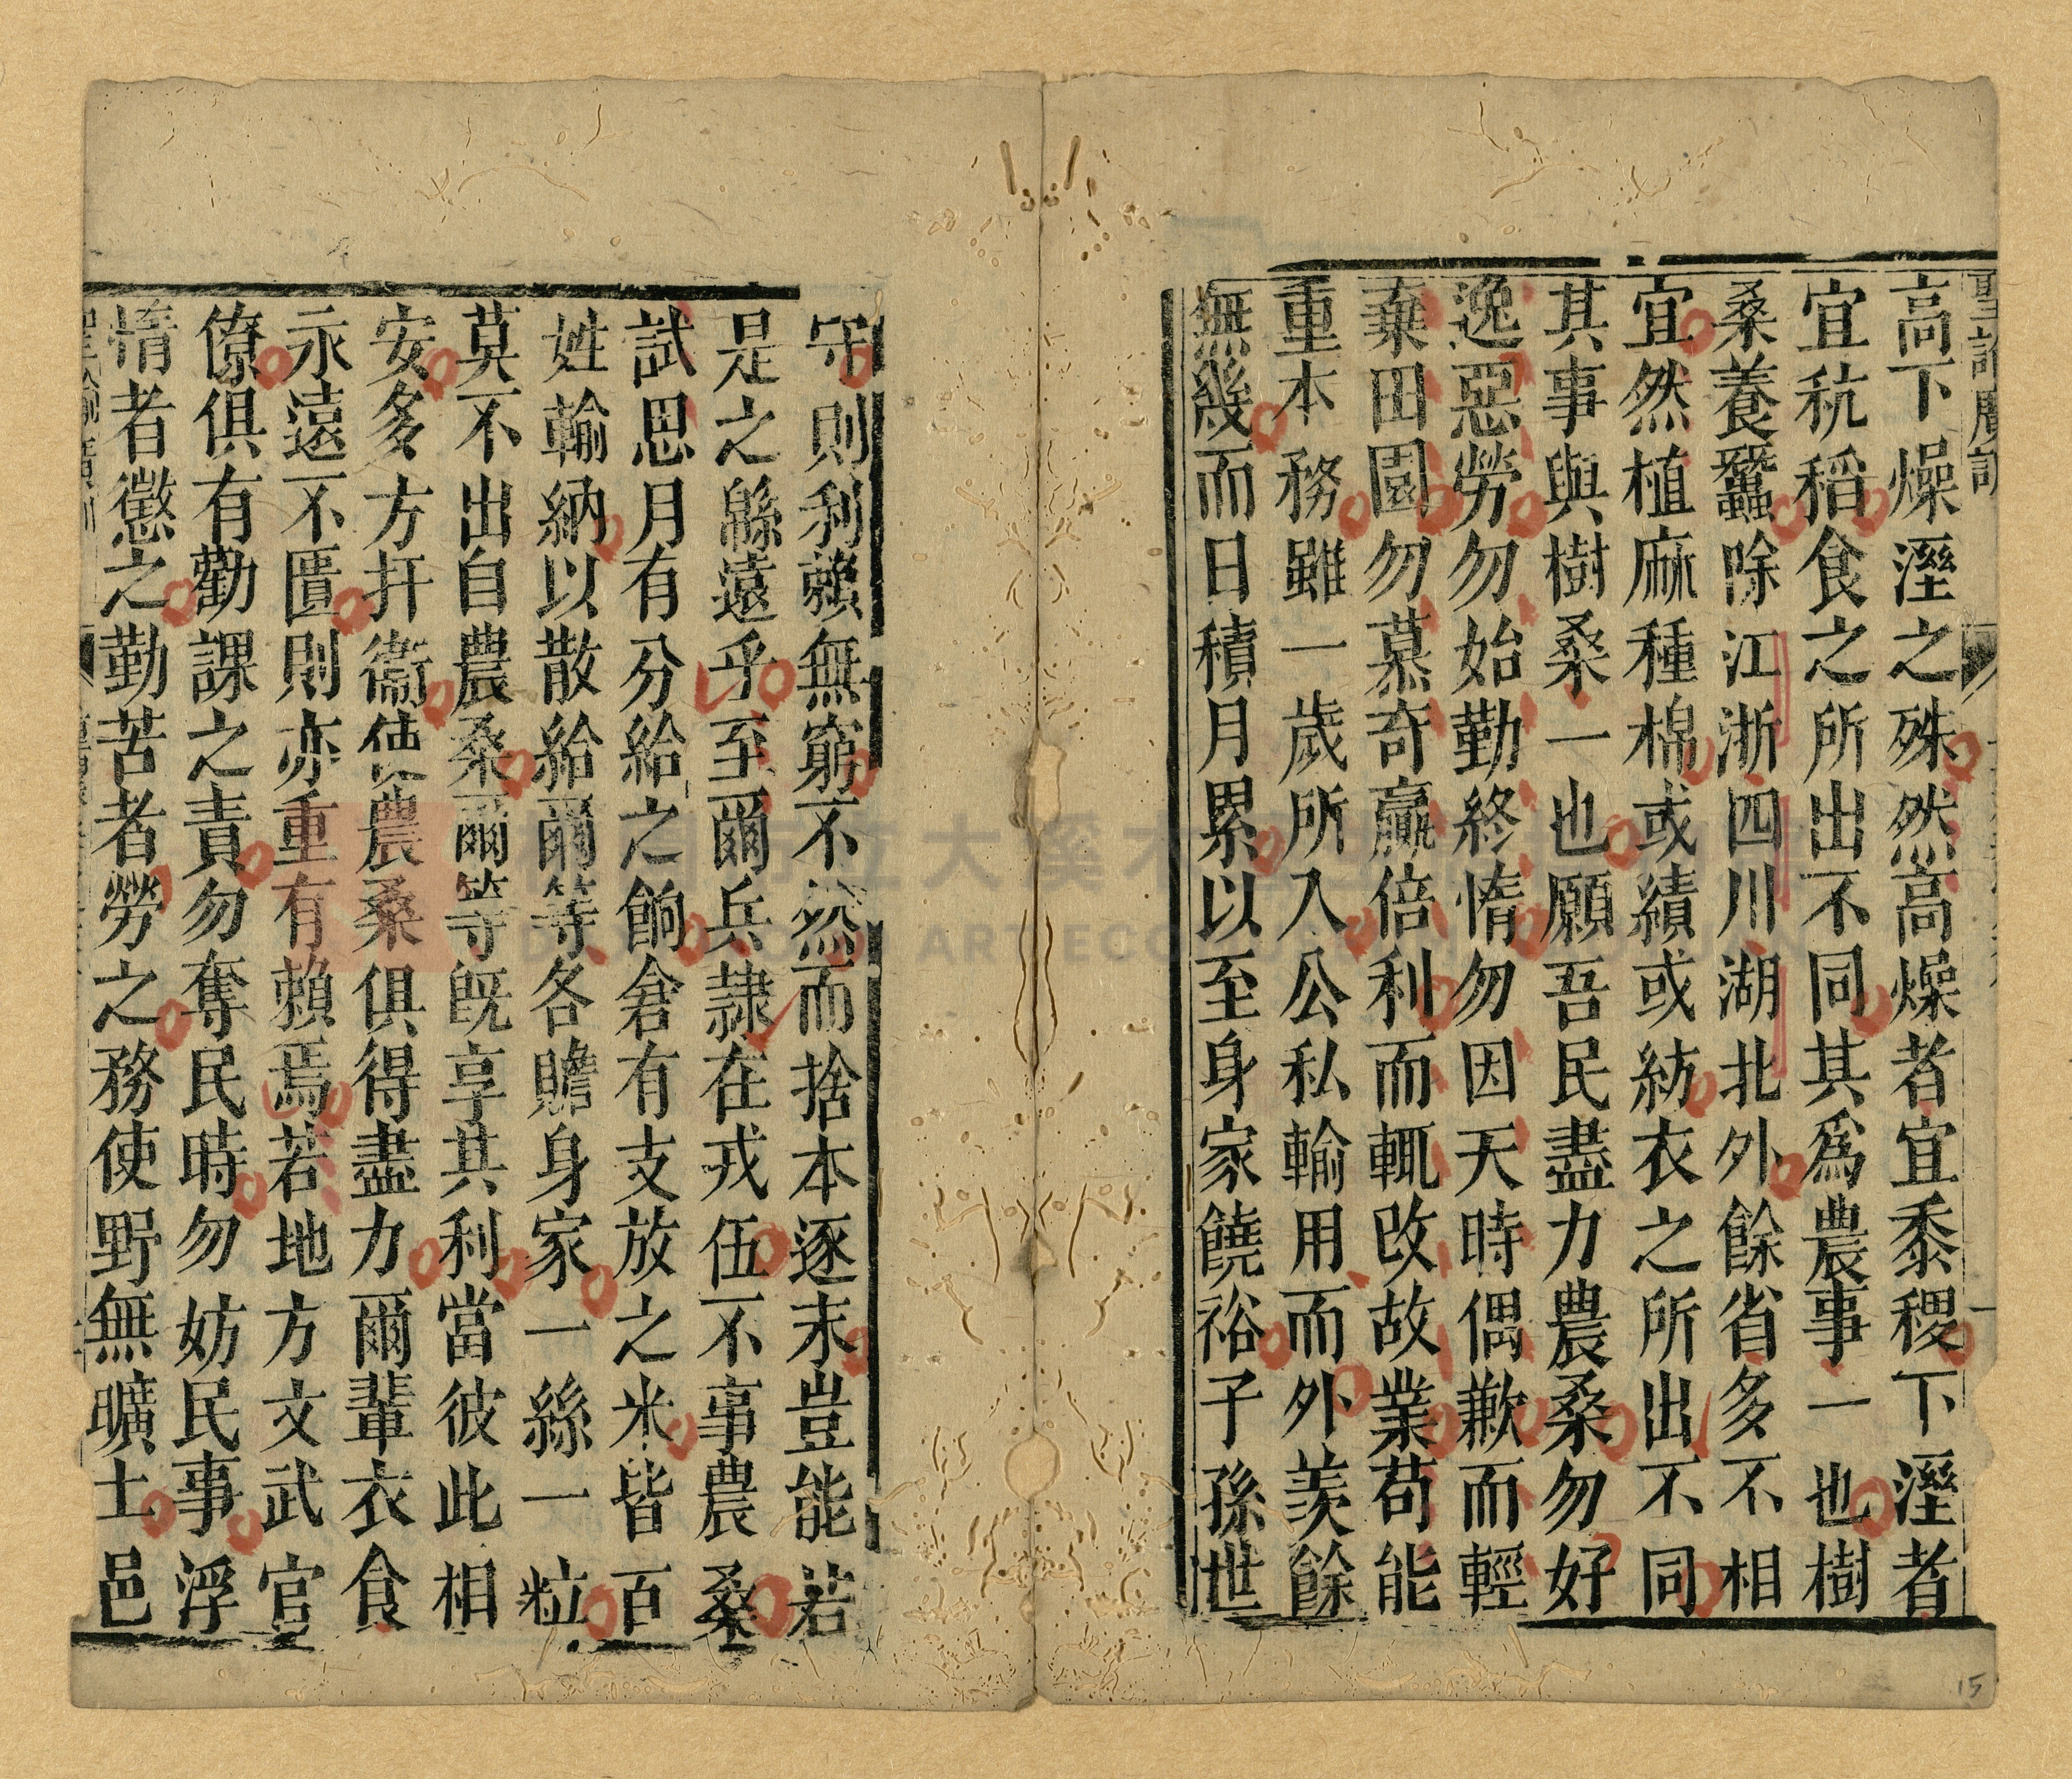 聖諭廣訓
高下燥溼之殊然高燥者宜黍稷下溼者
宜秔稻食之所出不同其爲農事一也樹
桑養蠶除江浙四川湖北外餘省多不相
宜然植麻種棉或績或紡衣之所出不同
其事與樹桑一也願吾民盡力農桑勿好
逸惡勞勿始勤終惰勿因天時偶歉而輕
棄田園勿慕奇贏倍利而輒改故業苟能
重本務雖一歲所入公私輸用而外羨餘
無幾而日積月累以至身家饒裕子孫世
守則利賴無窮不然而捨本逐末豈能若
是之緜遠乎至爾兵隸在戎伍不事農桑
試思月有分給之餉倉有支放之米皆百
姓輸納以散給爾等各贍身家一絲一粒
莫不出自農桑爾等既享其利當彼此相
安多方扞衞使農桑俱得盡力爾輩衣食
永遠不匱則亦重有賴焉若地方文武官
僚俱有勸課之責勿奪民時勿妨民事浮
惰者懲之勤苦者勞之務使野無曠土邑
聖諭廣訓
15